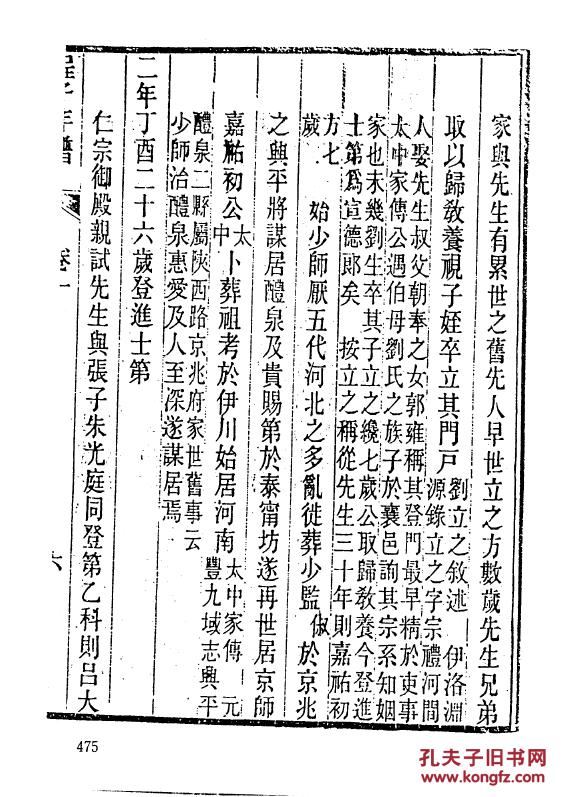 家與先生有累世之舊先人早世立之方數歲先生兄弟
取以歸敎養視子姪卒立其門戸劉立之敘述 伊洛淵
源錄立之字宗禮河間
人娶先生叔父朝奉之女郭雍稱其登門最早精於吏事
太中家傳公遇伯母劉氏之族子於襄邑詢其宗系知姻
家也未幾劉生卒其子立之纔七歲公取歸敎養今登進
士第爲宣德郎矣 按立之稱從先生三十年則嘉祐初
方七
歲 始少師厭五代河北之多亂徙葬少監俶於京兆
之興平將謀居醴泉及貴賜第於泰甯坊遂再世居京師
嘉祐初公太中卜葬祖考於伊川始居河南太中家傳 元
豐九域志興平
醴泉二縣屬陝西路京兆府家世舊事云
少師治醴泉惠愛及人至深遂謀居焉
二年丁酉二十六歲登進士第
仁宗御殿親試先生與張子朱光庭同登第乙科則呂大
卷一
六
475
孔夫子旧书网
www.kongfz.com